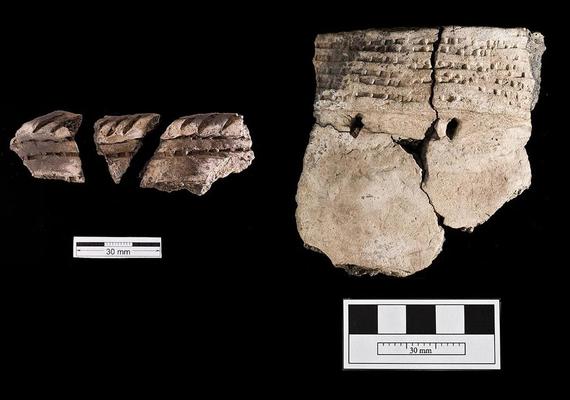 30 mm
30 mm